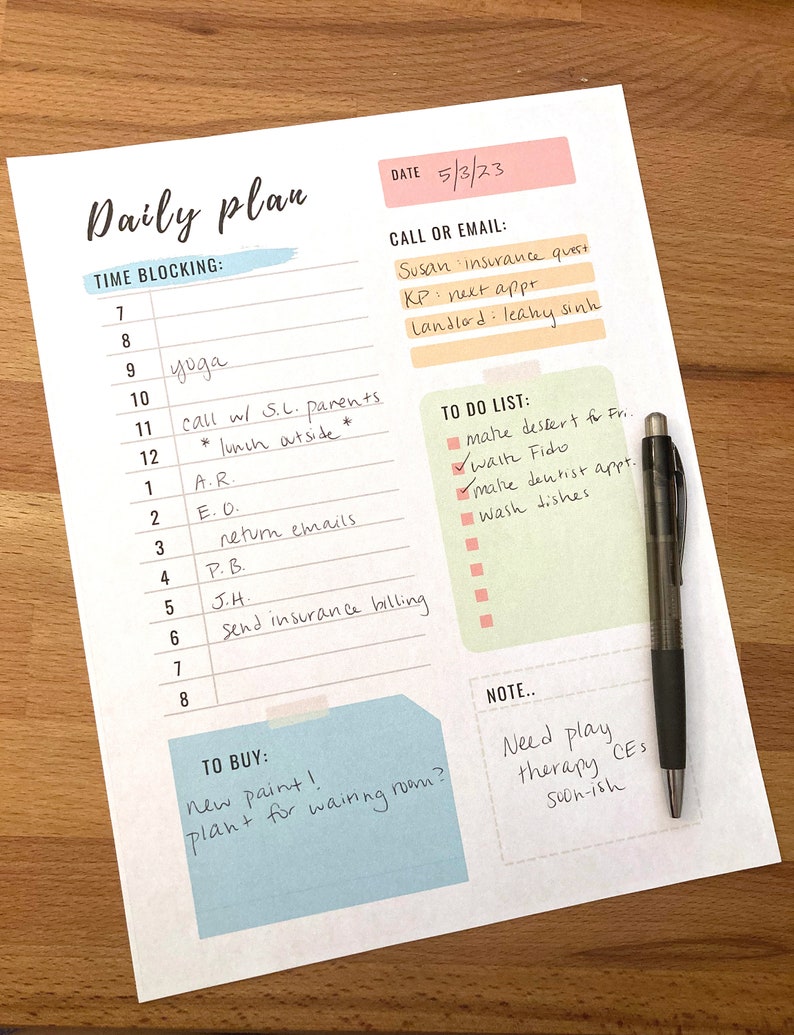 Daily plan
DATE 5/3/23
TIME BLOCKING:
7
8
9 yoga
10
11 call w/ S.L. parents
12 * lunch outside *
1 A.R.
2 E.O.
3 return emails
4 P.B.
5 J.H.
6 send insurance billing
7
8
CALL OR EMAIL:
Susan: insurance quest
KP: next appt
Landlord: leaky sink
TO DO LIST:
make dessert for Fri.
walk Fido
make dentist appt.
wash dishes
TO BUY:
new paint!
plant for waiting room?
NOTE..
Need play
therapy CEs
soon-ish